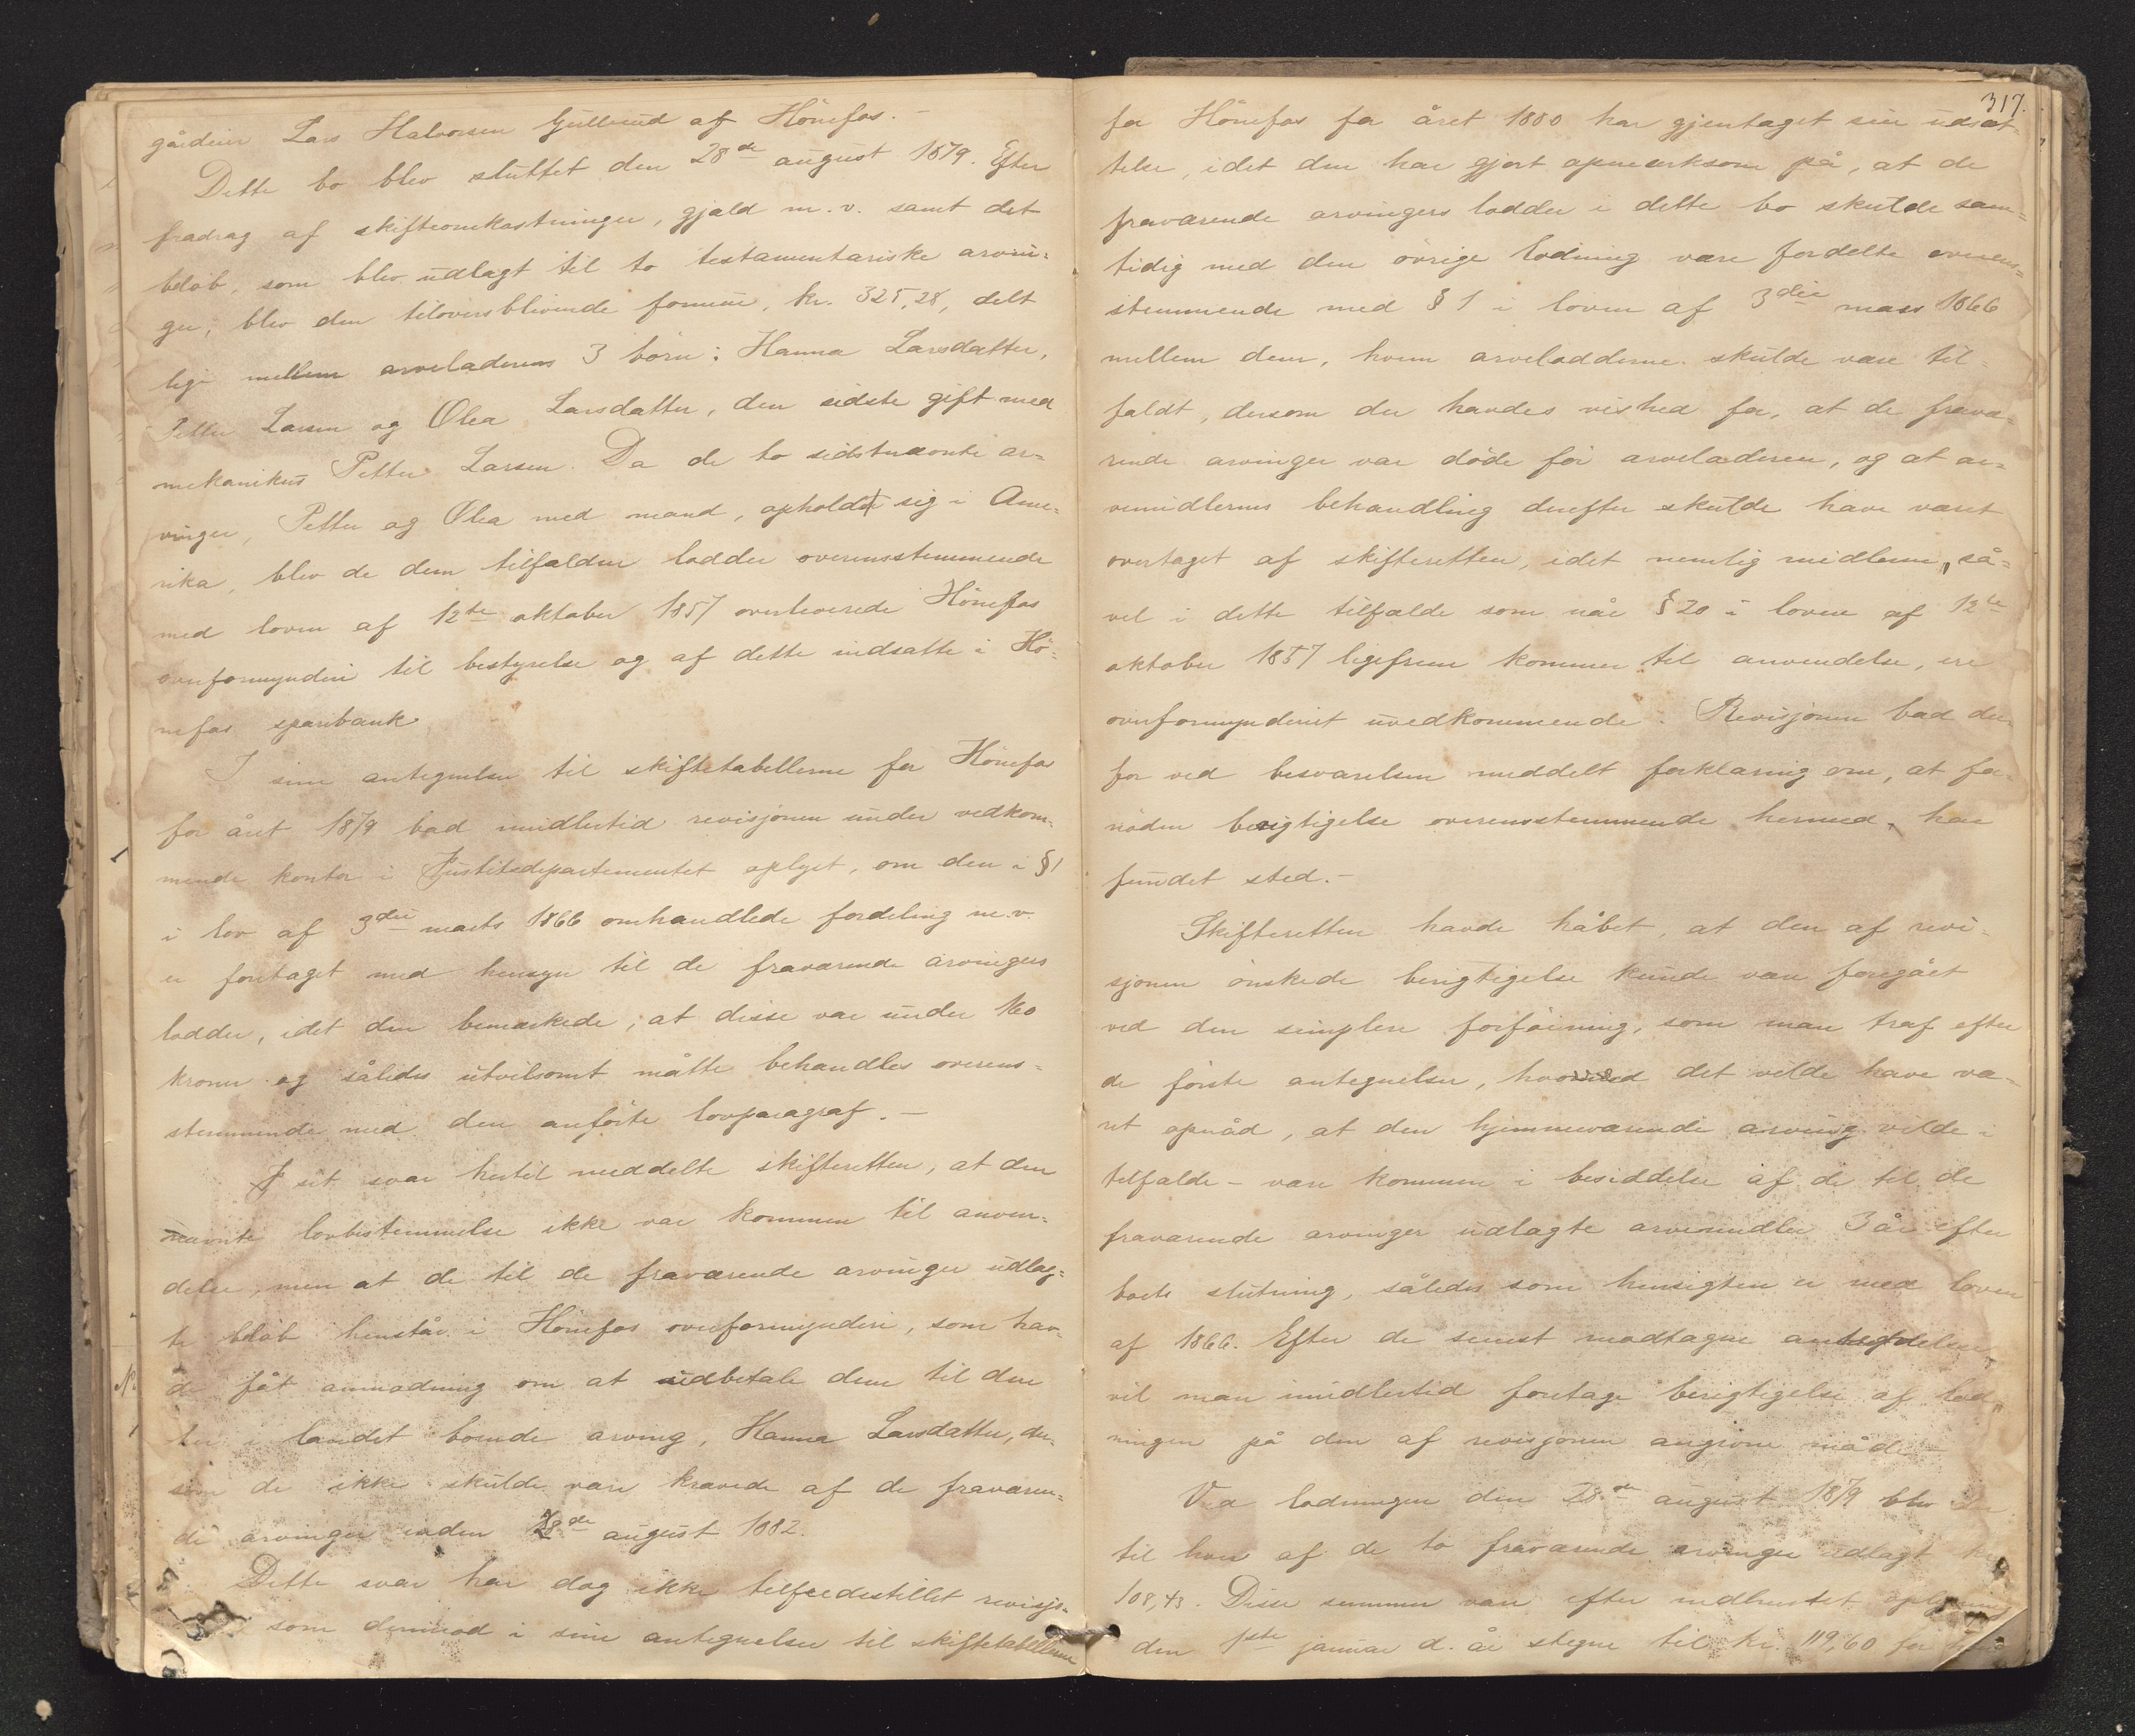 gårdeier Lars Halvorsen Gullerud af Hönefos. –
Dette bo blev sluttet den 28de august 1879. Efter
fradrag af skifteomkostninger, gjæld m. v. samt det
beløb, som blev udlagt til to testamentariske arvin=
ger, blev den tiloversblivende formue, kr. 325,28, delt
lige mellem arveladerens 3 börn: Hanna Larsdatter,
Petter Larsen og Olea Larsdatter, den sidste gift med
mekanikus Petter Larsen. Da de to sidstnævnte ar=
vinger, Petter og Olea med mand, opholdt sig i Ame=
rika, blev de dem tilfaldne lodder overensstemmende
med loven af 12te oktober 1857 overleverede Hönefos
overformynderi til bestyrelse og af dette indsatte i Hö=
nefos sparebank.
I sine antegnelser til skiftetabellerne for Hönefos
for året 1879 bad imidlertid revisjonen under vedkom=
mende kontor i Justitsdepartementet oplyst, om den i § 1
i lov af 3die marts 1866 omhandlede fordeling m.v.
er foretaget med hensyn til de fraværende arvingers
lodder, idet den bemærkede, at disse var under 160
kroner og således utvilsomt måtte behandles overens=
stemmende med den anförte lovparagraf. –
I sit svar hertil meddelte skifteretten, at den
nævnte lovbestemmelse ikke var kommen til anven=
delse, men at de til de fraværende arvinger udlag=
te beløb henstår i Hönefos overformynderi, som hav=
de fåt anmodning om at udbetale dem til den
her i landet boende arving, Hanna Larsdatter, der=
som de ikke skulde være krævede af de fraværen=
de arvinger inden 28de august 1882.
Dette svar har dog ikke tilfredsstillet revisjo=
som derimod i sine antegnelser til skiftetabellerne
317.
for Hönefos for året 1880 har gjentaget sin udsæt=
telse, idet den har gjort opmærksom på, at de
fraværende arvingers lodder i dette bo skulde sam=
tidig med den övrige lodning være fordelte overens=
stemmende med § 1 i loven af 3die mars 1866
mellem dem, hvem arvelodderne skulde være til=
faldt, dersom der havdes vished for, at de fravæ=
rende arvinger var döde för arveladeren, og at ar=
vemidlernes behandling derefter skulde have været
overtaget af skifteretten, idet nemlig midlerne, så=
vel i dette tilfælde som når § 20 i loven af 12te
oktober 1857 ligefrem kommer til anvendelse, ere
overformynderiet uvedkommende. Revisjonen bad der=
for ved besvarelsen meddelt forklaring om, at for=
nöden berigtigelse overensstemmende hermed har
fundet sted. –
Skifteretten havde håbet, at den af revi=
sjonen önskede berigtigelse kunde være foregået
ved den simplere forföining, som man traf efter
de förste antegnelser, hvorved det vilde have væ=
ret opnåd, at den hjemmeværende arving vilde i
tilfælde – være kommen i besiddelse af de til de
fraværende arvinger udlagte arvemidler 3 år efter
boets slutning, således som hensigten er med loven
af 1866. Efter de senest modtagne antegnelser
vil man imidlertid foretage berigtigelse af lod=
ningen på den af revisjonen angivne måde –
Ved lodningen den 28de august 1879 blev der
til hver af de to fraværende arvinger udlagt kr.
108,43. Disse summer var efter indhentet oplysning
den 1ste januar d. år stegne til kr. 119,60 for